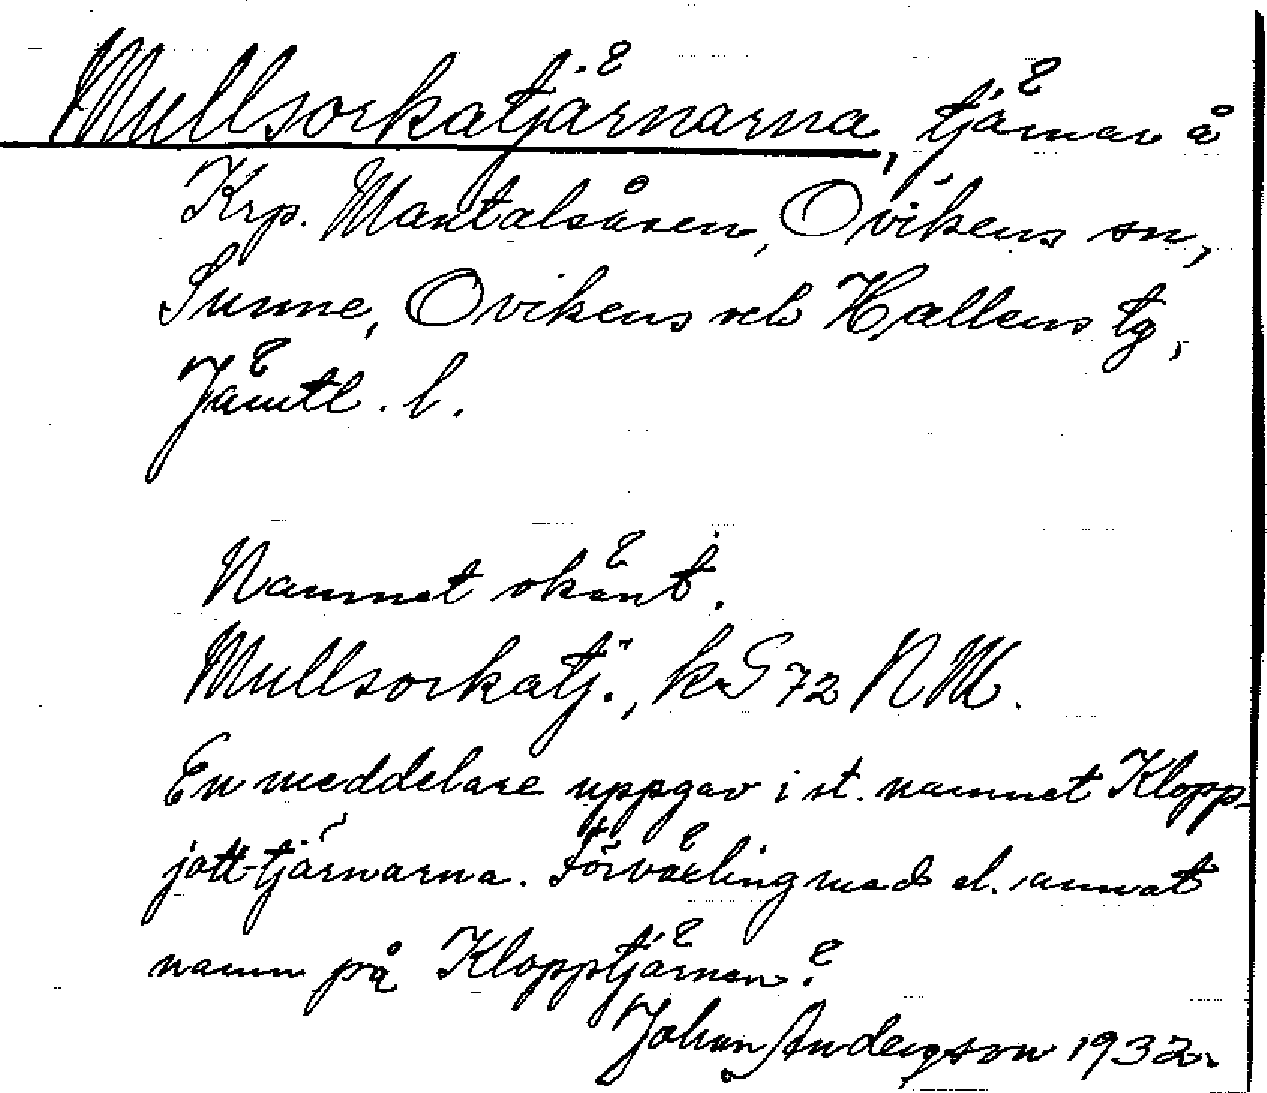 Mullsorkatjärnarna, tjärnar å
Krp. Mantalsåsen, Ovikens sn,
Sunne, Ovikens och Hallens tg,
Jämtl. l.
Namnet okänt.
Mullsorkatj., kS 72 NM.
En meddelare uppgav i st. namnet Klopp-
jott-tjärnarna. Förväxling med el. annat
namn på Klopptjärnen?
Johan Anderson 1932